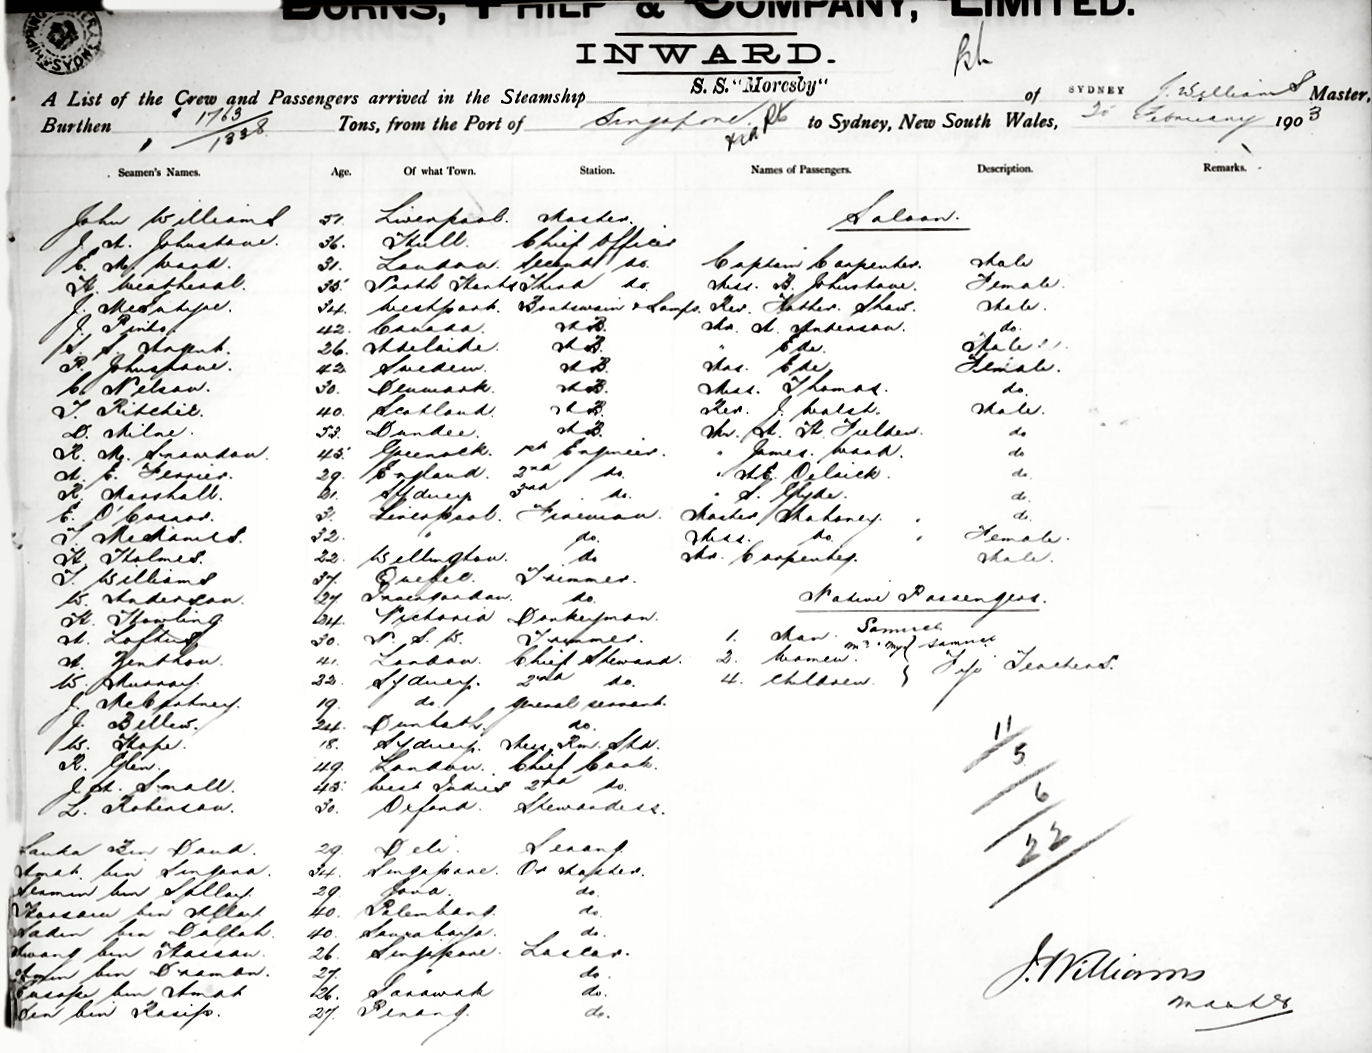 BURNS, PHILP & COMPANY, LIMITED.
INWARD.
S.S. "Moresby"
A List of the Crew and Passengers arrived in the Steamship of SYDNEY J. Williams Master,
Burthen 1763 / 1338 Tons, from the Port of Singapore to Sydney, New South Wales, February 1903
Seamen's Names. Age. Of what Town. Station. Names of Passengers. Description. Remarks.
John Williams 51. Liverpool. Master. Saloon.
J. A. Johnstone. 36. Hull. Chief Officer
E. M. Ward. 31. London. Second do. Captain Carpenter. Male
H. Weatheral. 35 North Hants Third do. Miss. B. Johnstone. Female.
J. McIntyre. 34. Westport. Boatswain & Lamps. Rev. Father Shaw. Male.
J. Pinto. 42. Canada. A.B. Mr. A. Anderson. do.
26. Adelaide. A.B. " Ede. Male
P. Johnstone. 42. Sweden. A.B. Mrs. Ede. Female.
C. Nelson. 30. Denmark. A.B. Miss. Thomas. do.
T. Ritchie. 40. Scotland. A.B. Rev. J. Walsh. Male.
D. Milne. 53. Dundee. A.B. Mr. A. H. Fielder. do
R. M. Snowdon. 45 Greenock. 1st Engineer. " James Wood. do
A. E. Ferrier. 29. England. 2nd do. " do
R. Marshall. 21. Sydney 3rd do. " S. Clyde. do
E. O'Connor. 3. Liverpool. Fireman. Master Mahoney. do
32. " do. Miss. do. Female.
H. Holmes. 22. Wellington. do Mr. Carpenter. Male.
T. Williams 37. Quebec. Trimmer.
W. Anderson. 27 do. Native Passengers.
H. Howling 24. Victoria Donkeyman.
A. Loftus 30. N. S. W. Trimmer. 1. Man. Samuel
A. 41. London. Chief Steward. 2. Women. Mrs. Samuel
W. Murray. 22. Sydney. 2nd do. 4. Children. Fiji Teachers.
J. McCartney. 19. do. General servant.
J. 24. do.
W. Hope. 18. Sydney. Mess Rm. Std. 11
R. Glen. 49. London. Chief Cook. 5
J. A. Small. 45 West Indies 2nd do. 6
L. Robinson. 30. Oxford. Stewardess. 22
bin Daud. 29. Deli. Serang.
Amat bin 34. Singapore.
bin 29. Java. do.
bin 40. Palembang. do.
bin 40. Sourabaya. do.
Awang bin Hassan. 26. Singapore. Lascar.
Amin bin Draman. 27. " do.
bin Amat 26. Sarawak do.
bin Kasip. 27. Penang. do.
J. Williams
Master